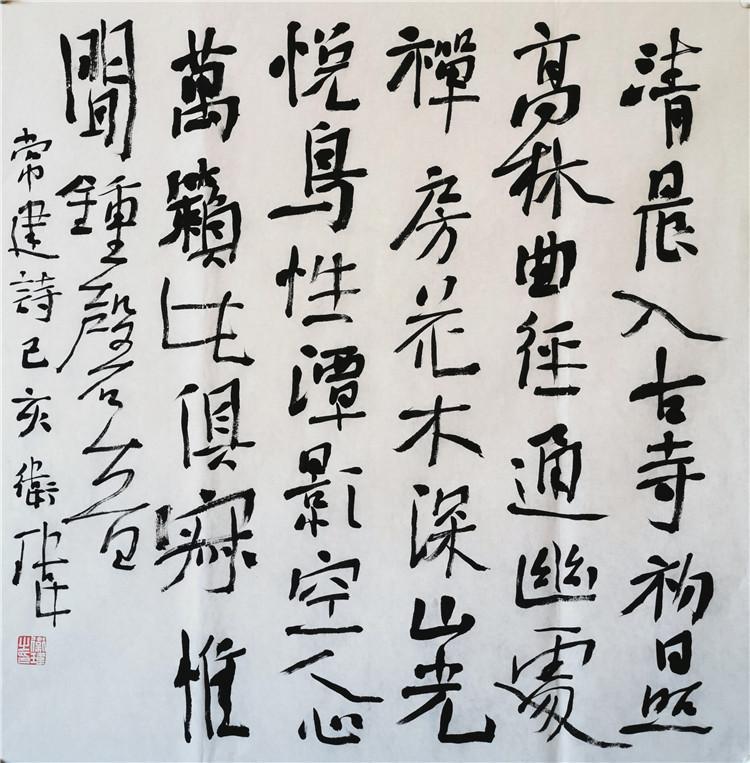 清晨入古寺初日照
高林曲径通幽處
禪房花木深山光
悦鳥性潭影空人心
萬籟此俱寂惟
聞鍾磬音
常建詩己亥衛